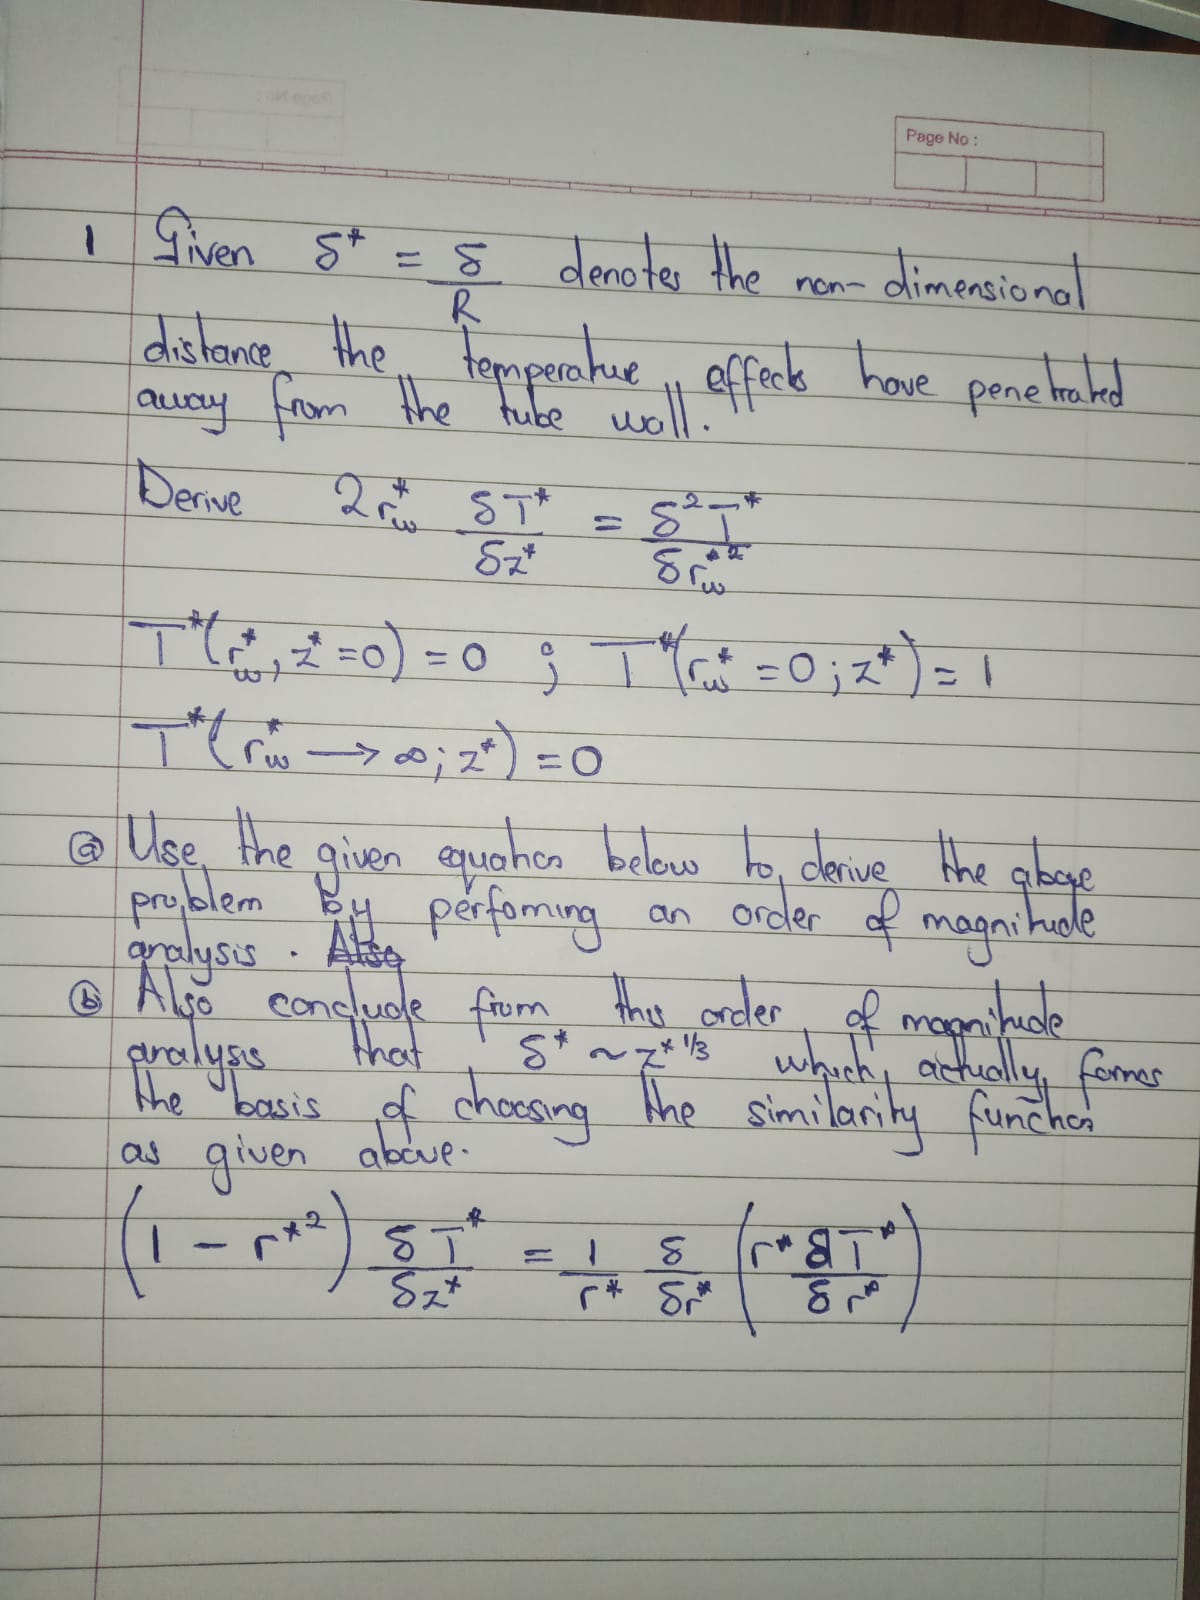 Page No :
1 Given δ* = δ/R denotes the non-dimensional
distance the temperature effects have penetrated
away from the tube wall.
Derive 2r*_w δT*/δz* = δ²T*/δr*_w²
T*(r*_w, z*=0) = 0 ; T*(r*_w = 0; z*) = 1
T*(r*_w → ∞; z*) = 0
ⓐ Use the given equation below to derive the above
problem by perfoming an order of magnitude
analysis. Also
ⓑ Also conclude from this order of magnitude
analysis that δ* ~ z*^1/3 which actually formes
the basis of choosing the similarity function
as given above.
(1 - r*²) δT*/δz* = 1/r* δ/δr* (r* δT*/δr*)